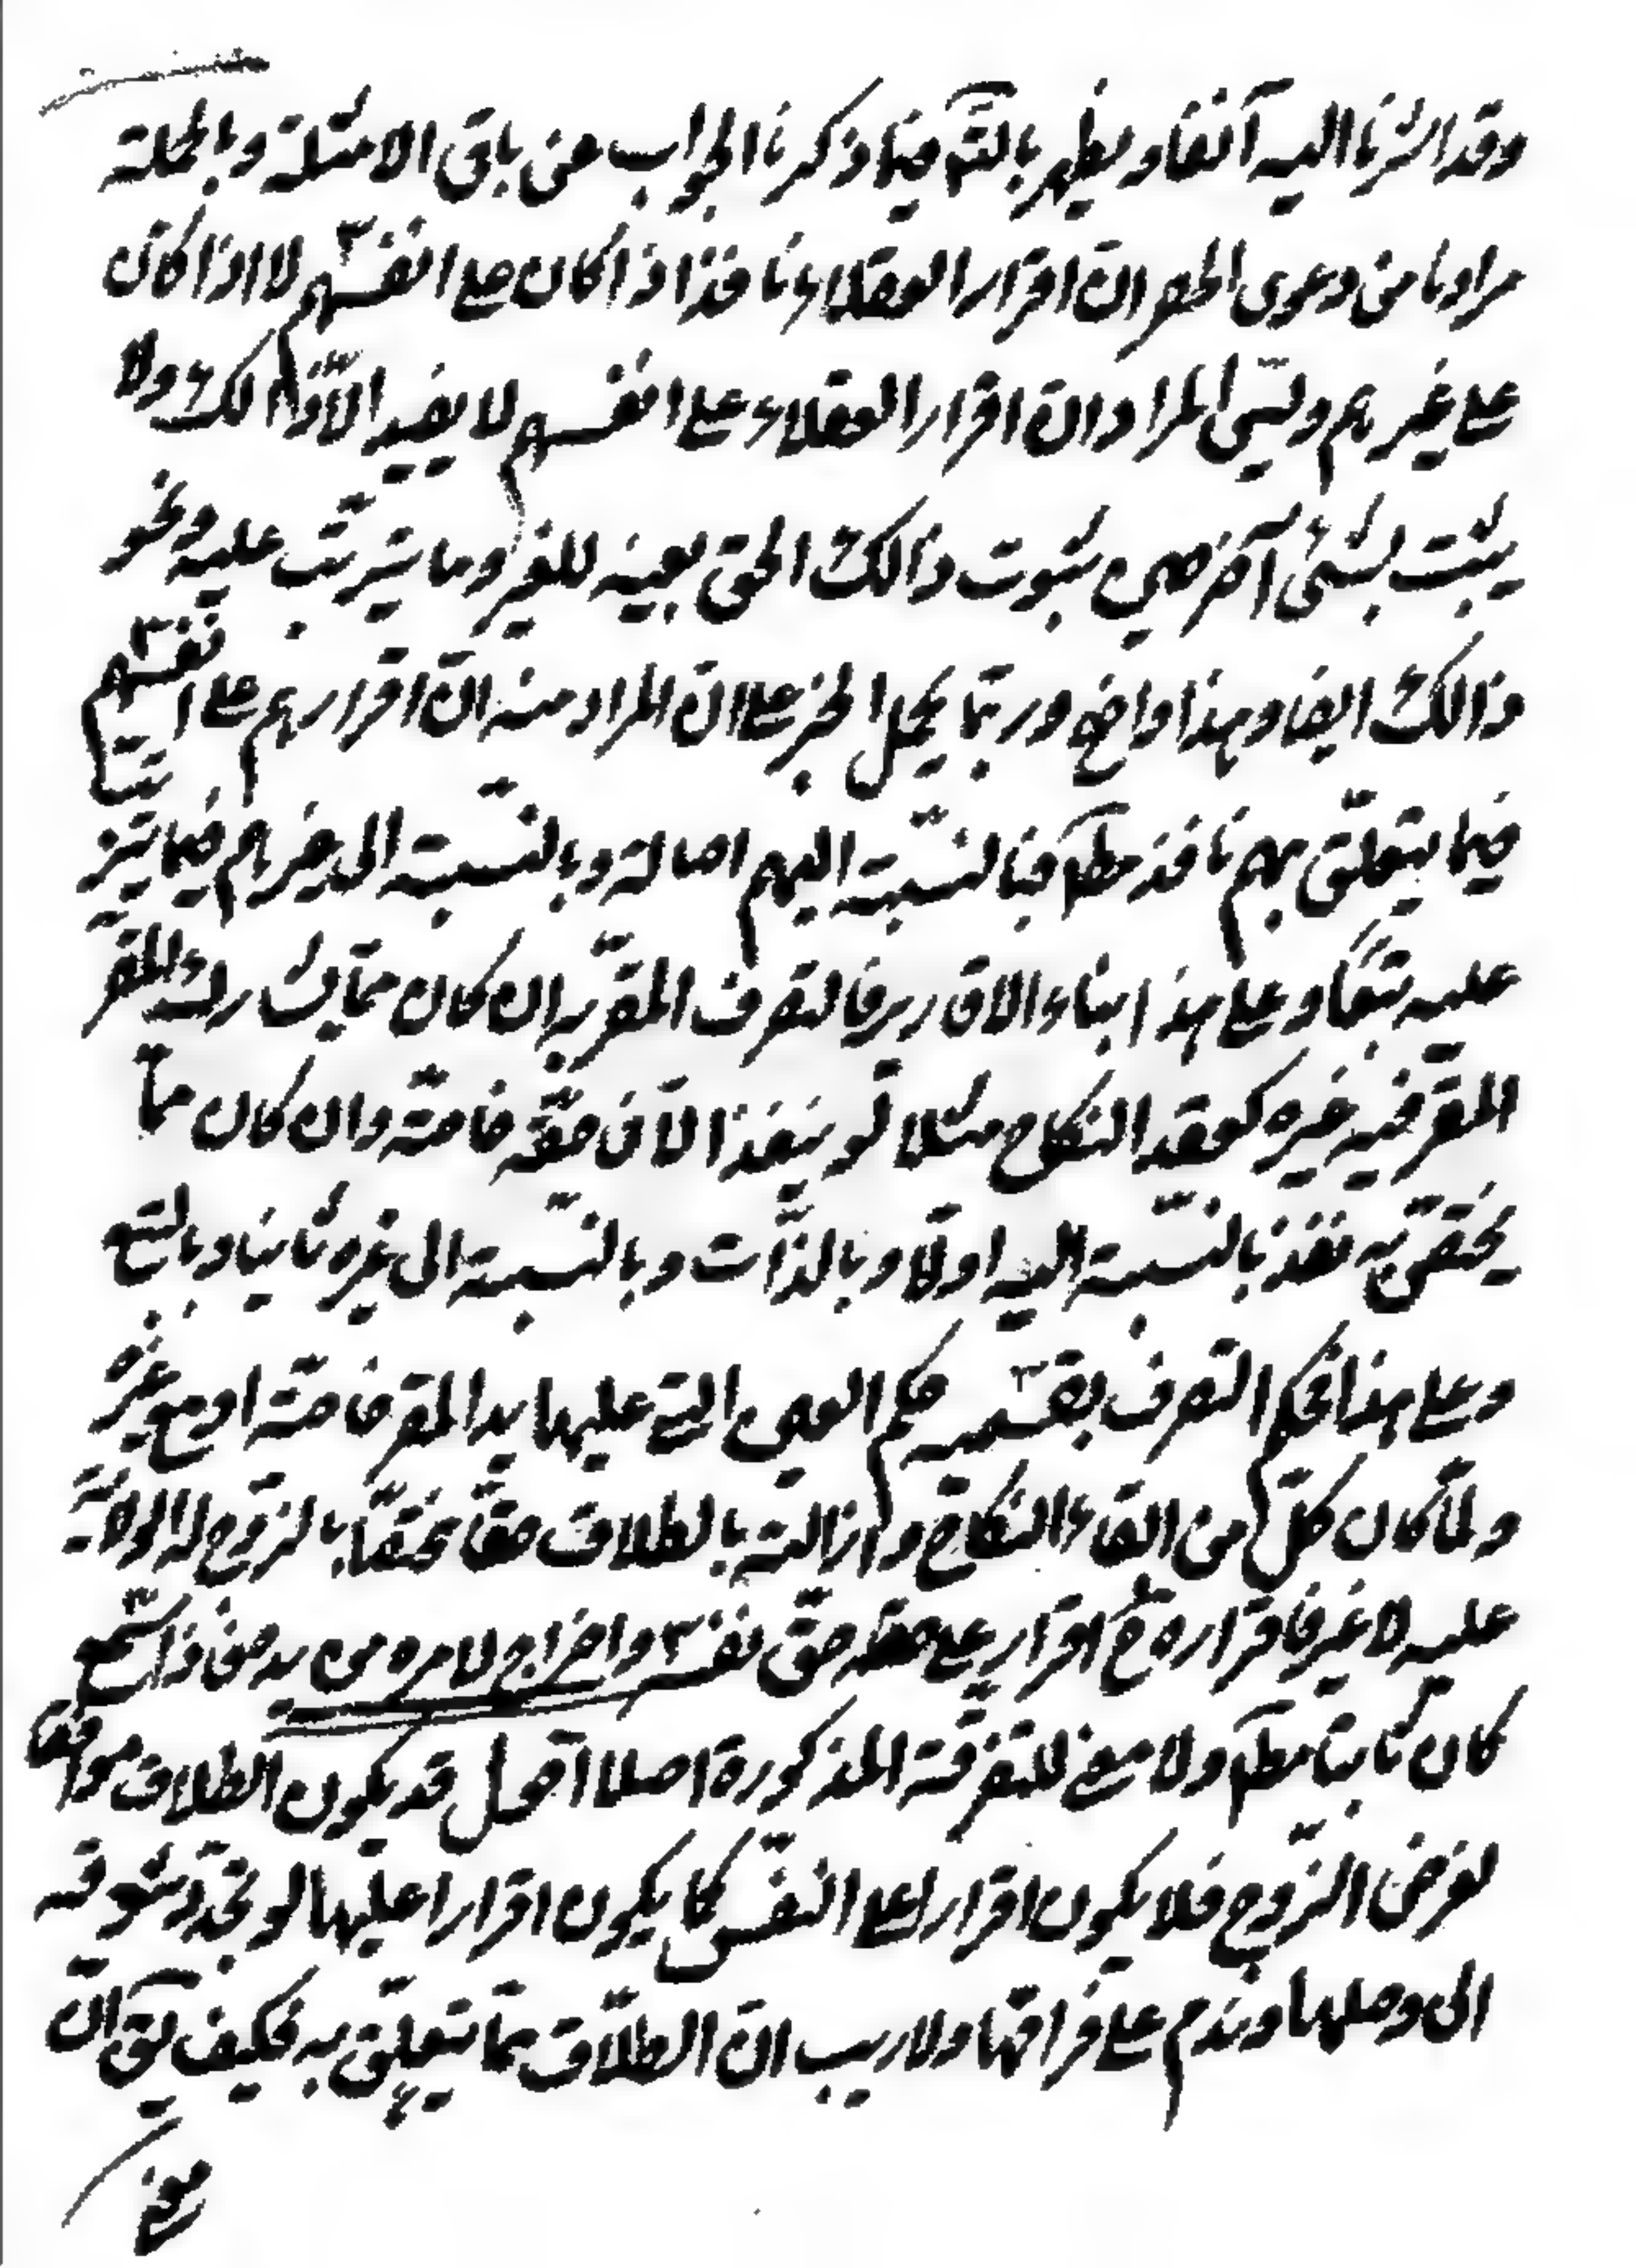 وقد اشرنا اليه آنفا و يظهر بالتأمّل فيما ذكرنا الجواب عن باقى الامثلة و بالجملة
مرادنا من دعوى الحصر انّ اقرار العقلاء نافذ اذا كان على انفسهم لا اذا كان
على غيرهم وليس المراد انّ اقرار العقلاء على انفسهم لا يفيد الّا ذالك ولا
يثبت بشئ آخر حتى ثبوت ذالك الحق بعينه للغير وما يترتّب عليه ونحو
ذالك ايضا و هذا واضح وربّما يحمل الخبر على انّ المراد منه انّ اقرارهم على انفسهم
فيما يتعلّق بهم نافذ مطلقا فبالنّسبة اليهم اصالة وبالنّسبة الى غيرهم فيما يترتّب
عليه تبعًا و على هذا بناء الاقارير فالتصرف المقرّ به ان كان ممّا يشارك المقرّ
المقرّ فيه غيره كعقد النكاح مثلا لم ينفذ الّا فى حقّه خاصّة وان كان ممّا
يختصّ به نفذ بالنّسبة اليه اوّلا و بالذّات و بالنّسبة الى غيره ثانيا و بالتّبع
و على هذا فحكم التصرف بقسميه حكم العين الّتى عليها يد المقر خاصّة او مع غيره
ولمّا كان كلّ من ابقاء النكاح و ازالته بالطلاق حقّا مختصّا بالزوج له الولاية
عليه لا غير فاقراره ح اقرار على حقّ نفسه و اخراج لامره من يده فاذا سمع
كان ثابتا مطلقا ولا معنى للتفرقة المذكورة اصلا اقول قد يكون الطلاق موافقا
لغرض الزّوج فلا يكون اقرارا على النفس كما يكون اقرارا عليها لو تجدّد شوقه
الى وصلها و ندم على فراقها ولا ريب انّ الطلاق ممّا يتعلّق به فكيف يق انّ
معنى